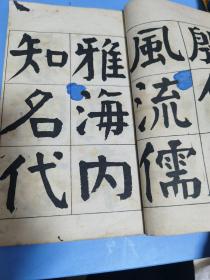 風流儒
雅海内
知名代